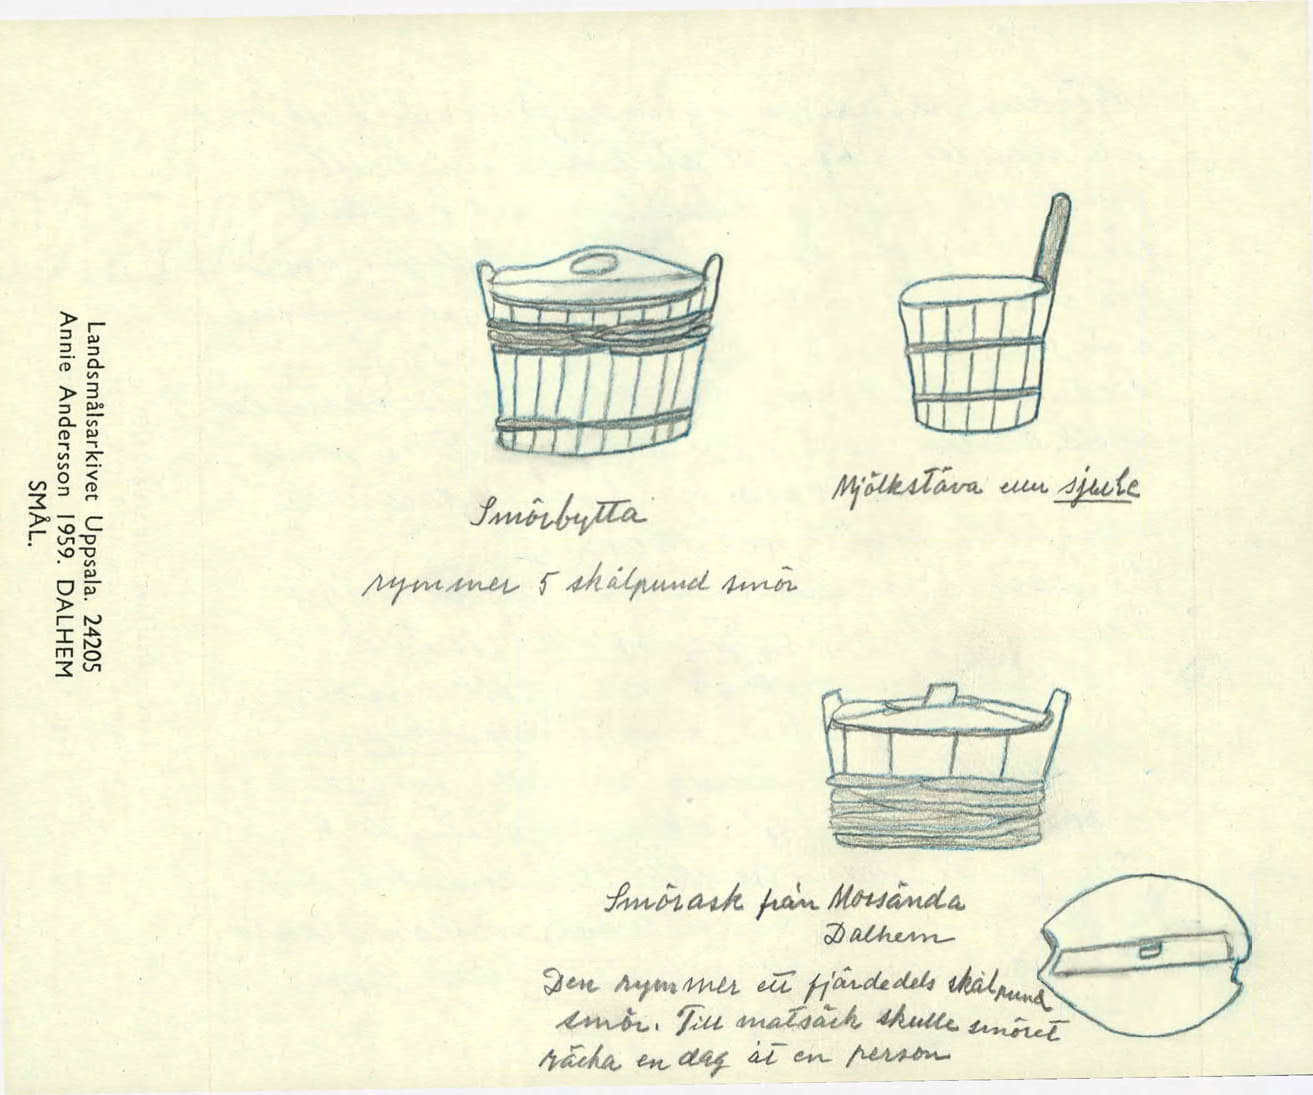 Landsmålsarkivet Uppsala. 24205
Annie Andersson 1959. DALHEM
SMÅL.
Smörbytta
rymmer 5 skålpund smör
Mjölkstäva
Smörask från Mossända
Dalhem
Den rymmer ett fjärdedels skålpund
smör. Till matsäck skulle smöret
räcka en dag åt en person